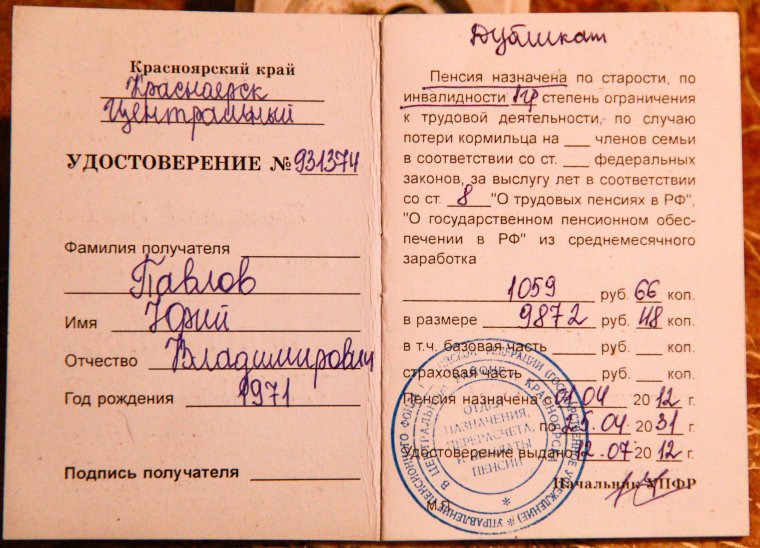 Красноярский край
Красноярск
Центральный
УДОСТОВЕРЕНИЕ № 931374
Фамилия получателя
Павлов
Имя Юрий
Отчество Владимирович
Год рождения 1971 г.
Подпись получателя
Дубликат
Пенсия назначена по старости, по
инвалидности степень ограничения
к трудовой деятельности, по случаю
потери кормильца на ___ членов семьи
в соответствии со ст. ___ федеральных
законов, за выслугу лет в соответствии
со ст. 8 "О трудовых пенсиях в РФ",
"О государственном пенсионном обес-
печении в РФ" из среднемесячного
заработка
1059 руб. 66 коп.
в размере 9872 руб. 48 коп.
в т.ч. базовая часть ___ руб. ___ коп.
страховая часть ___ руб. ___ коп.
Пенсия назначена с 01.04 2012 г.
по 25.04 2031 г.
Удостоверение выдано 12.07 2012 г.
Начальник УПФР
М.П.
ОТДЕЛ
НАЗНАЧЕНИЯ,
ПЕРЕРАСЧЕТА,
И ВЫПЛАТЫ
ПЕНСИЙ